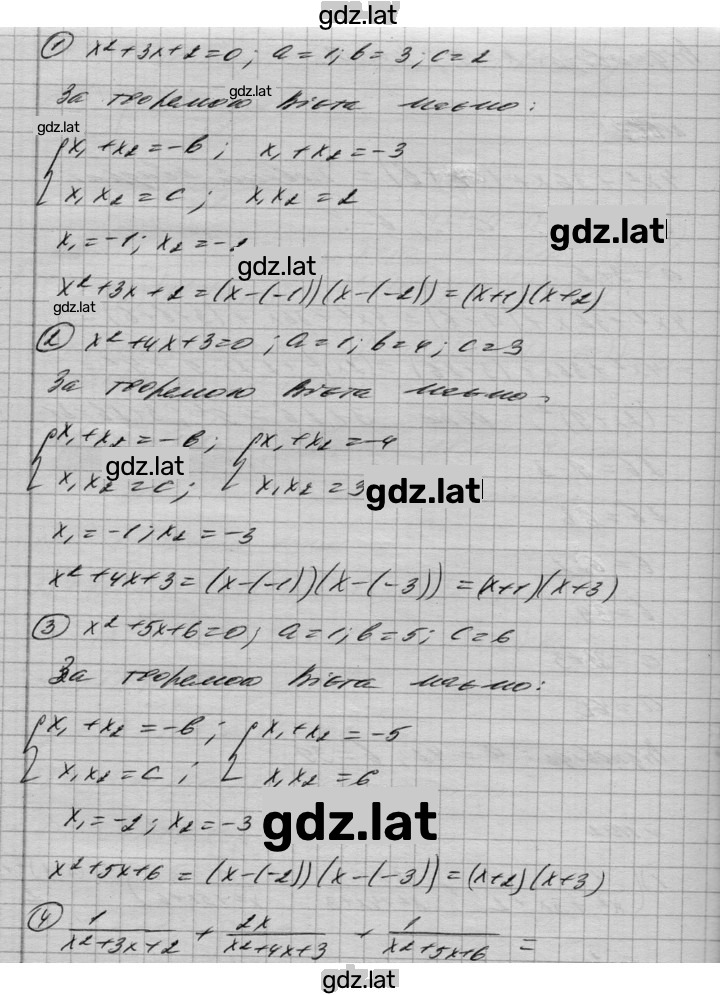 gdz.lat
① x²+3x+2=0; a=1; b=3; c=2
gdz.lat
За теоремою Вієта маємо:
gdz.lat
{ x₁+x₂=-b; x₁+x₂=-3
x₁x₂=c; x₁x₂=2
gdz.lat
x₁=-1; x₂=-2
gdz.lat
x²+3x+2=(x-(-1))(x-(-2))=(x+1)(x+2)
gdz.lat
② x²+4x+3=0; a=1; b=4; c=3
За теоремою Вієта маємо:
{ x₁+x₂=-b; { x₁+x₂=-4
gdz.lat
x₁x₂=c; x₁x₂=3
gdz.lat
x₁=-1; x₂=-3
x²+4x+3=(x-(-1))(x-(-3))=(x+1)(x+3)
③ x²+5x+6=0; a=1; b=5; c=6
За теоремою Вієта маємо:
{ x₁+x₂=-b; { x₁+x₂=-5
x₁x₂=c; x₁x₂=6
x₁=-2; x₂=-3
gdz.lat
x²+5x+6=(x-(-2))(x-(-3))=(x+2)(x+3)
④ 1/(x²+3x+2) + 2x/(x²+4x+3) + 1/(x²+5x+6) =
gdz.lat